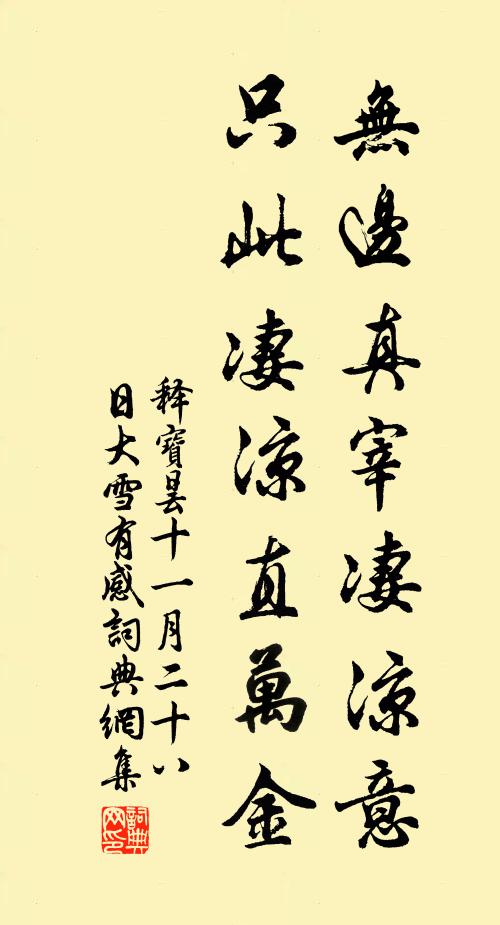 無邊真宰凄涼意
只此凄涼直萬金
释寶曇十一月二十八
日大雪有感詞典網集
詞典
网印